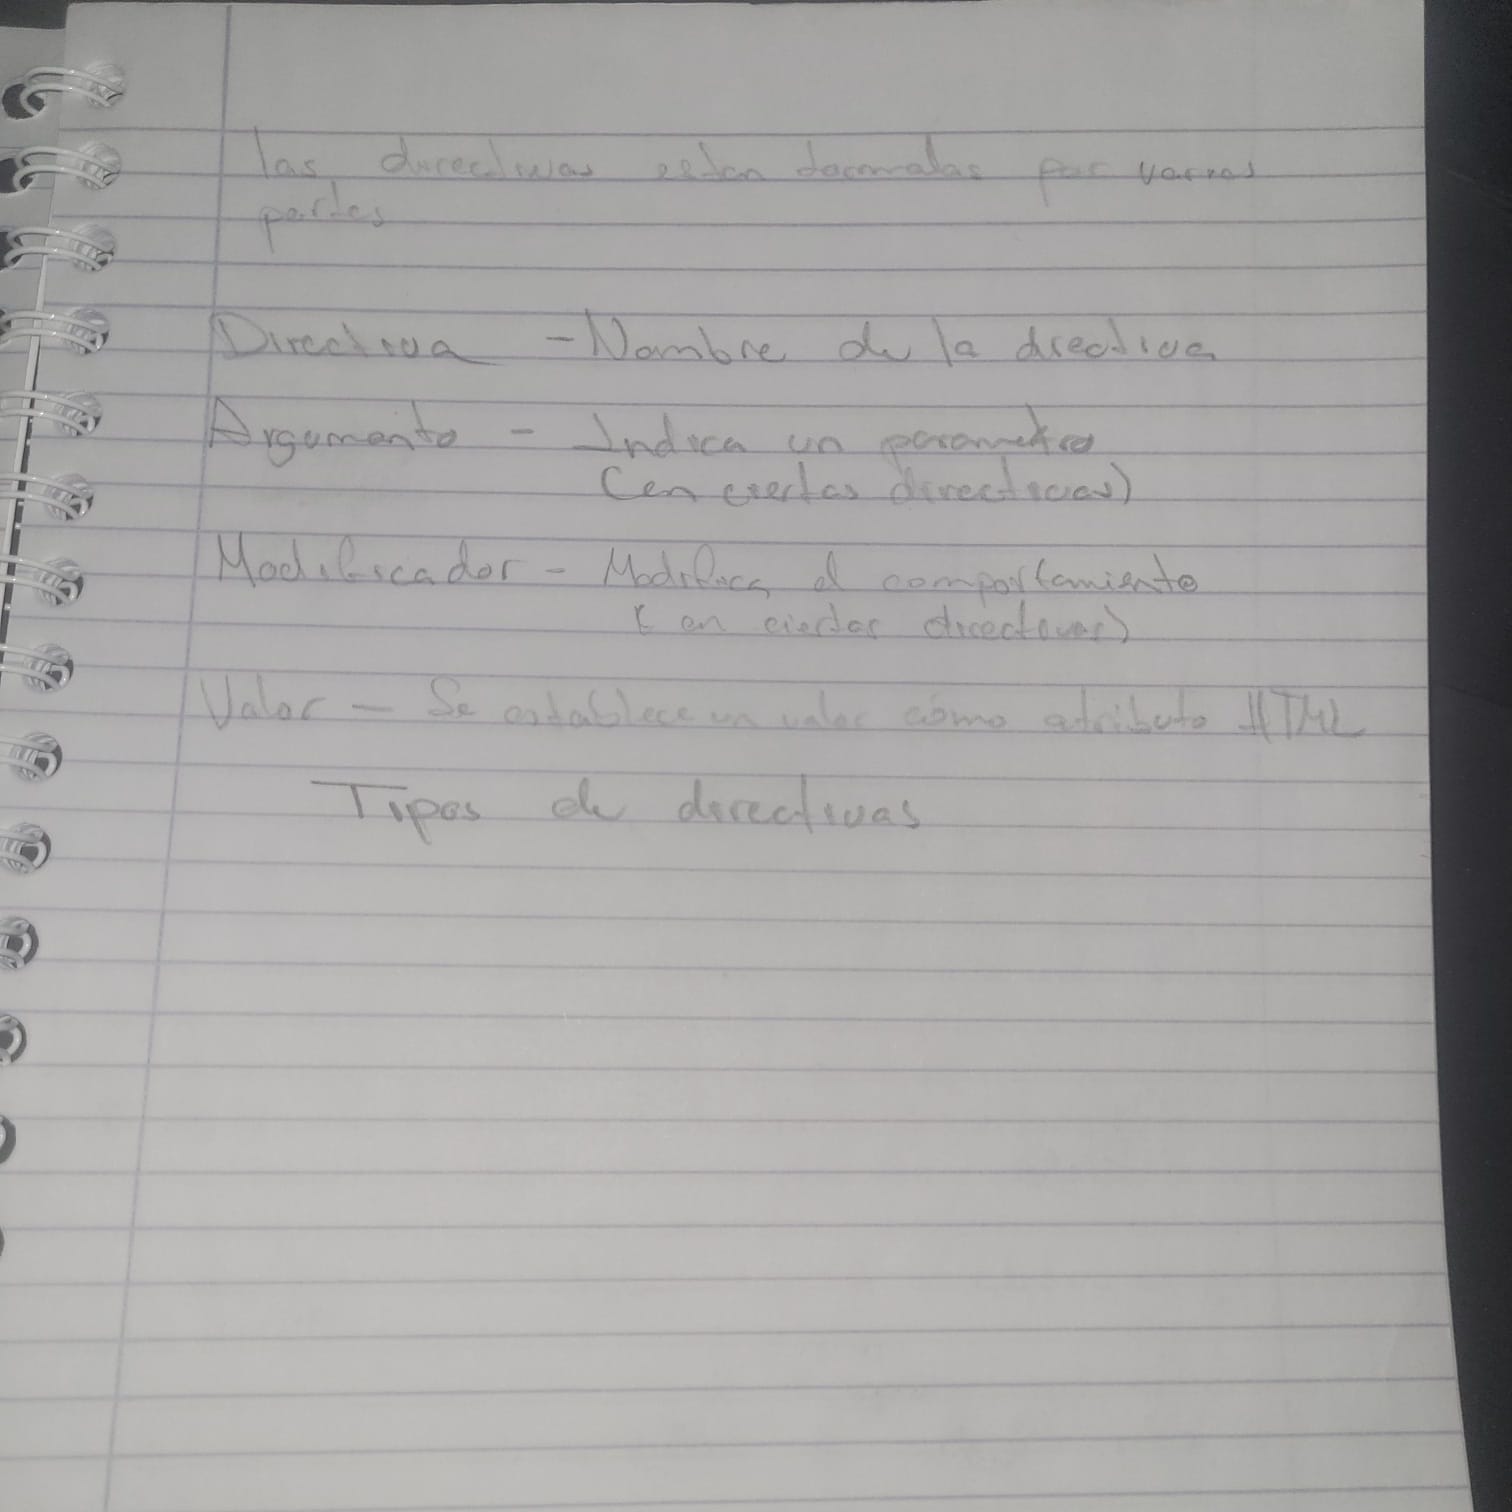 las directivas estan formadas por varias
partes
Directiva - Nombre de la directiva
Argumento - Indica un parametro
(en ciertas directivas)
Modificador - Modifica el comportamiento
(en ciertas directivas)
Valor - Se establece un valor como atributo HTML
Tipos de directivas